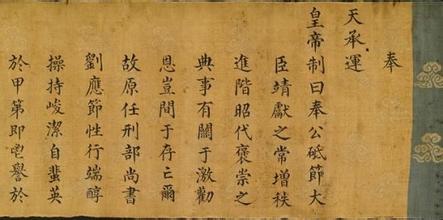 奉
天承運
皇帝制曰奉公砥節大
臣靖獻之常增秩
進階昭代褒崇之
典事有關于激勸
恩豈間于存亡爾
故原任刑部尚書
劉應節性行端醇
操持峻潔自蜚英
於甲第即電譽於